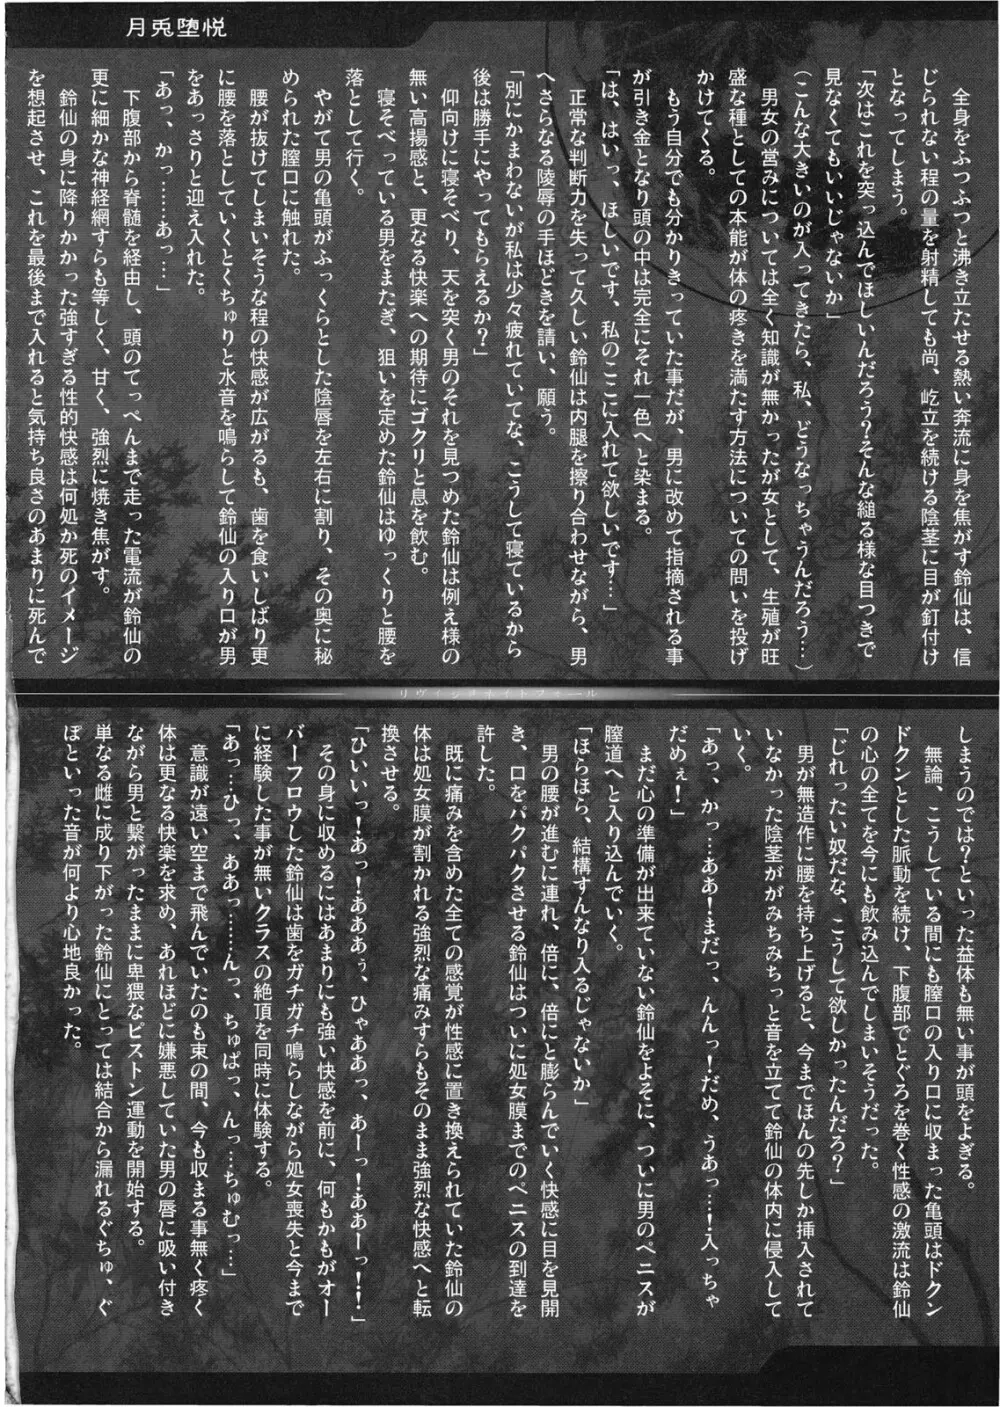 月兎堕悦
全身をふつふつと沸き立たせる熱い奔流に身を焦がす鈴仙は、信
じられない程の量を射精しても尚、屹立を続ける陰茎に目が釘付け
となってしまう。
「次はこれを突っ込んでほしいんだろう？そんな縋る様な目つきで
見なくてもいいじゃないか」
（こんな大きいのが入ってきたら、私、どうなっちゃうんだろう…）
男女の営みについては全く知識が無かったが女として、生殖が旺
盛な種としての本能が体の疼きを満たす方法についての問いを投げ
かけてくる。
もう自分でも分かりきっていた事だが、男に改めて指摘される事
が引き金となり頭の中は完全にそれ一色へと染まる。
「は、はいっ、ほしいです、私のここに入れて欲しいです…」
正常な判断力を失って久しい鈴仙は内腿を擦り合わせながら、男
へさらなる陵辱の手ほどきを請い、願う。
「別にかまわないが私は少々疲れていてな、こうして寝ているから
後は勝手にやってもらえるか？」
仰向けに寝そべり、天を突く男のそれを見つめた鈴仙は例え様の
無い高揚感と、更なる快楽への期待にゴクリと息を飲む。
寝そべっている男をまたぎ、狙いを定めた鈴仙はゆっくりと腰を
落として行く。
やがて男の亀頭がふっくらとした陰唇を左右に割り、その奥に秘
められた膣口に触れた。
腰が抜けてしまいそうな程の快感が広がるも、歯を食いしばり更
に腰を落としていくとくちゅりと水音を鳴らして鈴仙の入り口が男
をあっさりと迎え入れた。
「あっ、かっ………あっ…」
下腹部から脊髄を経由し、頭のてっぺんまで走った電流が鈴仙の
更に細かな神経網すらも等しく、甘く、強烈に焼き焦がす。
鈴仙の身に降りかかった強すぎる性的快感は何処か死のイメージ
を想起させ、これを最後まで入れると気持ち良さのあまりに死んで
リヴィジョネートフォール
しまうのでは？といった益体も無い事が頭をよぎる。
無論、こうしている間にも膣口の入り口に収まった亀頭はドクン
ドクンとした脈動を続け、下腹部でとぐろを巻く性感の激流は鈴仙
の心の全てを今にも飲み込んでしまいそうだった。
「じれったい奴だな、こうして欲しかったんだろ？」
男が無造作に腰を持ち上げると、今までほんの先しか挿入されて
いなかった陰茎ががみちみちっと音を立てて鈴仙の体内に侵入して
いく。
「あっ、かっ…ああ！まだっ、んんっ！だめ、うあっ…！入っちゃ
だめぇ！」
まだ心の準備が出来ていない鈴仙をよそに、ついに男のペニスが
膣道へと入り込んでいく。
「ほらほら、結構すんなり入るじゃないか」
男の腰が進むに連れ、倍に、倍にと膨らんでいく快感に目を見開
き、口をパクパクさせる鈴仙はついに処女膜までのペニスの到達を
許した。
既に痛みを含めた全ての感覚が性感に置き換えられていた鈴仙の
体は処女膜が割かれる強烈な痛みすらもそのまま強烈な快感へと転
換させる。
「ひいいっ！あっ！あああぅ、ひゃああっ、あーっ！ああーっ！！」
その身に収めるにはあまりにも強い快感を前に、何もかもがオー
バーフロウした鈴仙は歯をガチガチ鳴らしながら処女喪失と今まで
に経験した事が無いクラスの絶頂を同時に体験する。
「あっ…ひっ、ああっ……んっ、ちゅぱっ、んっ…ちゅむっ…」
意識が遠い空まで飛んでいたのも束の間、今も収まる事無く疼く
体は更なる快楽を求め、あれほどに嫌悪していた男の唇に吸い付き
ながら男と繋がったままに卑猥なピストン運動を開始する。
単なる雌に成り下がった鈴仙にとっては結合から漏れるぐちゅ、ぐ
ぽといった音が何より心地良かった。